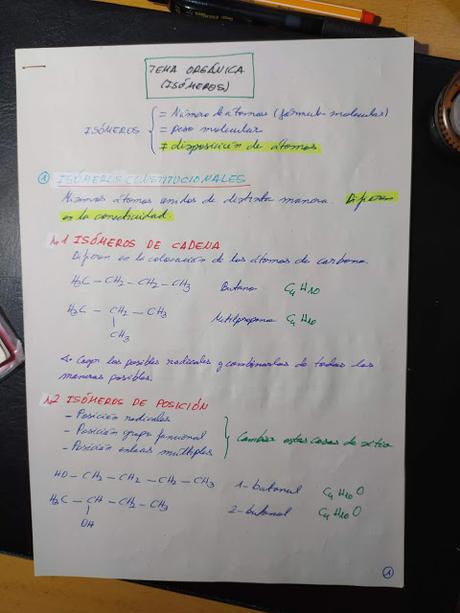 TEMA ORGÁNICA
(ISÓMEROS)
= Número de átomos (fórmula molecular)
ISÓMEROS = peso molecular
≠ disposición de átomos
① ISÓMEROS CONSTITUCIONALES
Mismos átomos unidos de distinta manera. Difieren
en la conectividad.
1.1 ISÓMEROS DE CADENA
Difieren en la colocación de los átomos de carbono.
H₃C — CH₂ — CH₂ — CH₃ Butano C₄H10
H₃C — CH₂ — CH₃ Metilpropano C₄H10
CH₃
Coger los posibles radicales y combinarlos de todas las
maneras posibles.
1.2 ISÓMEROS DE POSICIÓN
- Posición radicales
- Posición grupo funcional
- Posición enlaces múltiples
Cambiar estas cosas de sitio
HO — CH₂ — CH₂ — CH₂ — CH₃ 1-butanol C₄H10O
H₃C — CH — CH₂ — CH₃ 2-butanol C₄H10O
OH
①